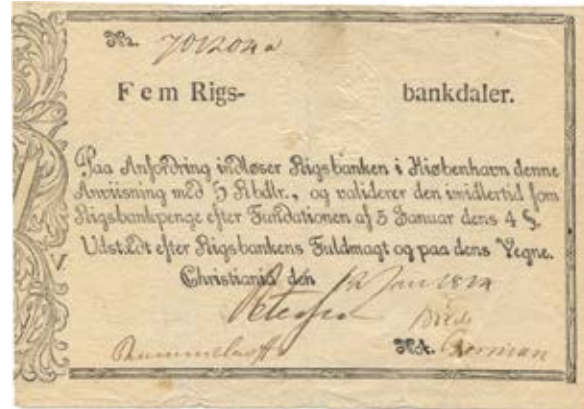 No. 701204 a
Fem Rigs- bankdaler.
Paa Anfordring indløser Rigsbanken i Kiøbenhavn denne
Anviisning med 5 Rbdlr., og validerer den imidlertid som
Rigsbankpenge efter Fundationen af 5 Januar dens 4 §.
Udstædt efter Rigsbankens Fuldmagt og paa dens Vegne.
Christiania den 12 Jan 1814
V